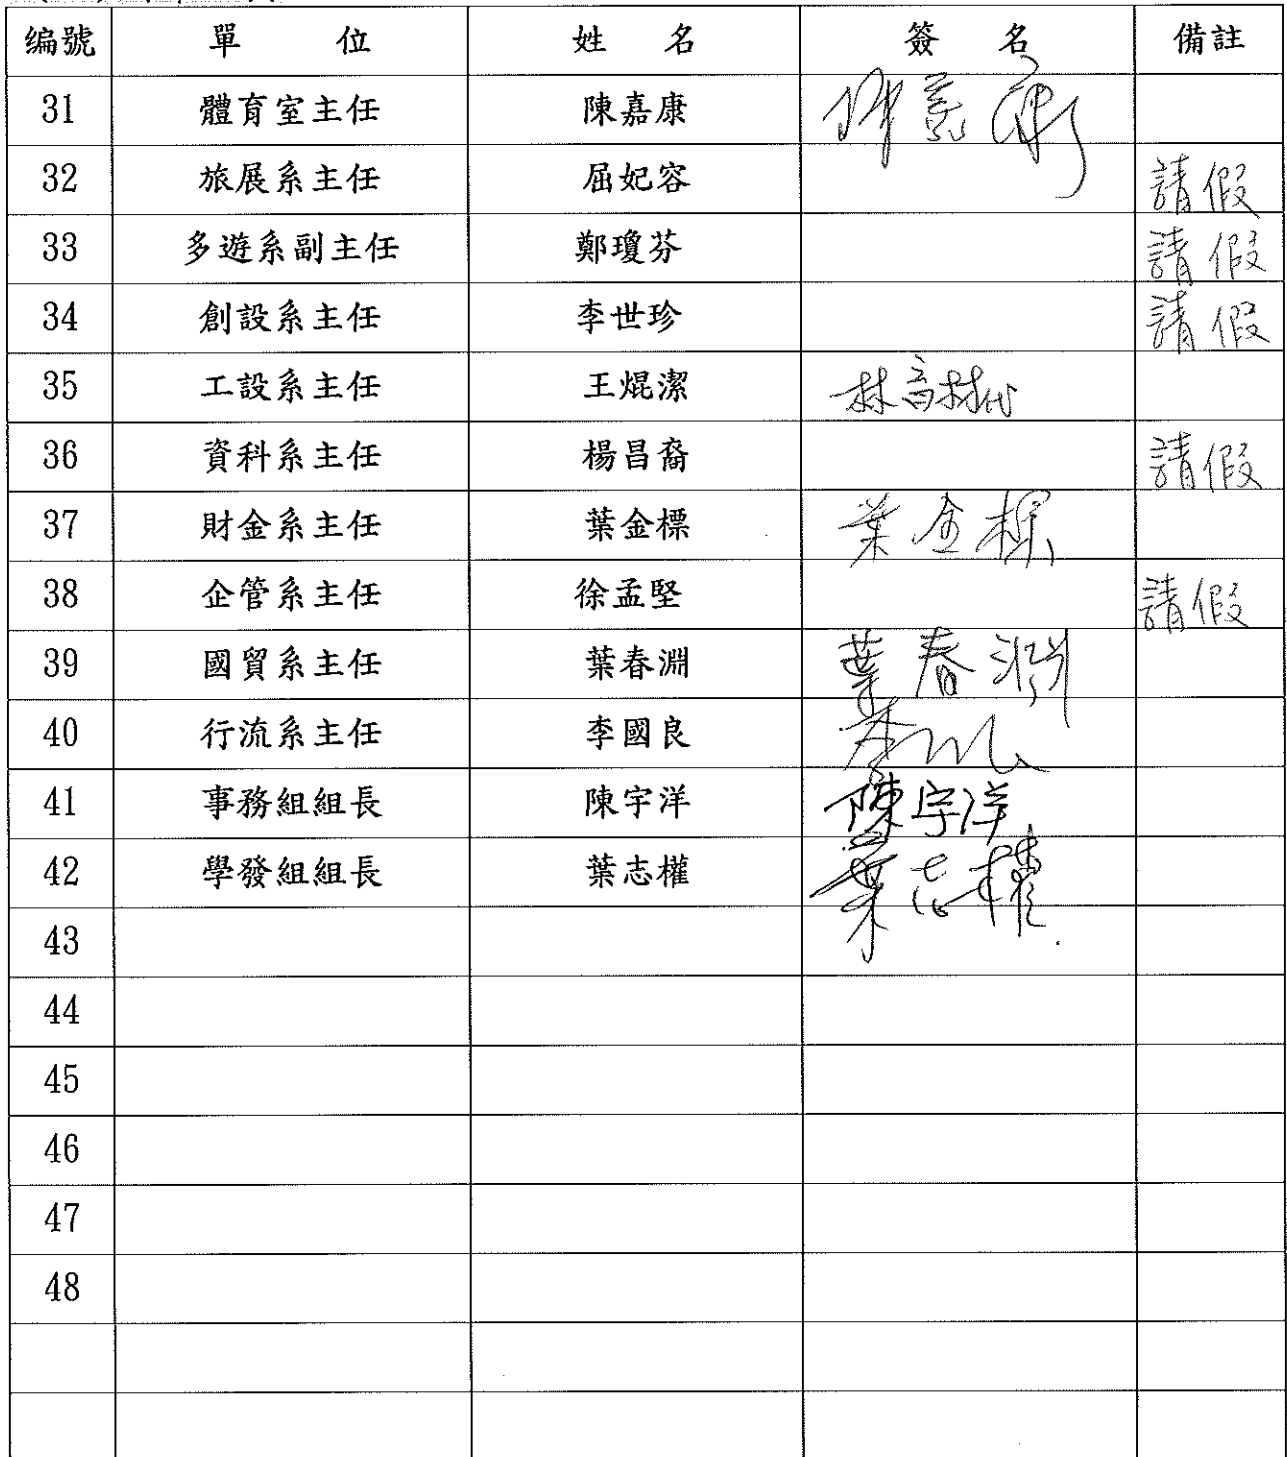 编號 單位 姓名 簽名 備註
31 體育室主任 陳嘉康
32 旅展系主任 屈妃容 請假
33 多遊系副主任 鄭瓊芬 請假
34 創設系主任 李世珍 請假
35 工設系主任 王焜潔 林高材代
36 資科系主任 楊昌裔 請假
37 財金系主任 葉金標 葉金標
38 企管系主任 徐孟堅 請假
39 國貿系主任 葉春淵 葉春淵
40 行流系主任 李國良
41 事務組組長 陳宇洋 陳宇洋
42 學發組組長 葉志權 葉志權
43
44
45
46
47
48